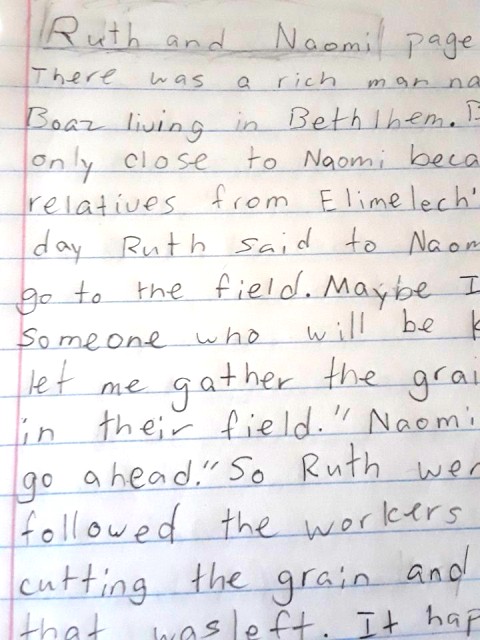 Ruth and Naomi page
There was a rich man na
Boaz living in Bethlhem. B
only close to Naomi beca
relatives from Elimelech'
day Ruth said to Naom
go to the field. Maybe I
someone who will be k
let me gather the grai
in their field." Naomi
go ahead." So Ruth wen
followed the workers
cutting the grain and
that was left. It hap